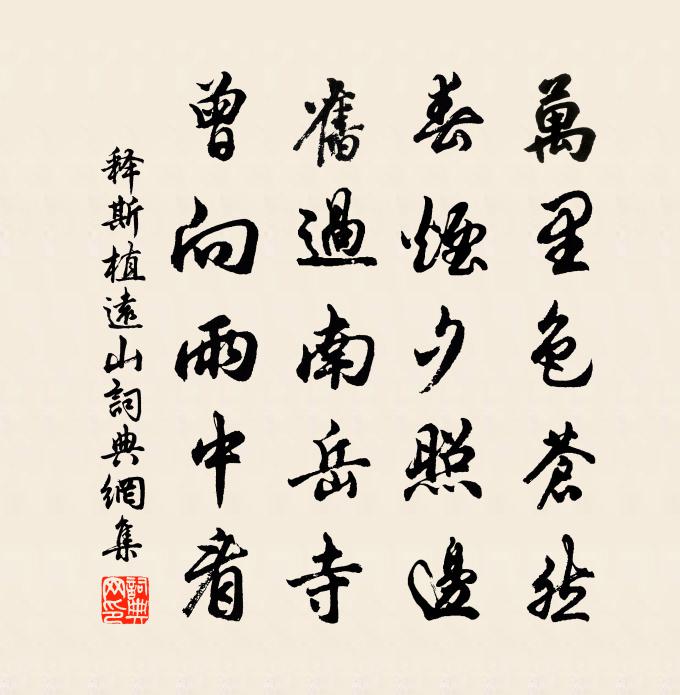 萬里色蒼然
春煙夕照邊
舊過南岳寺
曾向雨中看
释斯植遠山詞典網集
詞典
网印